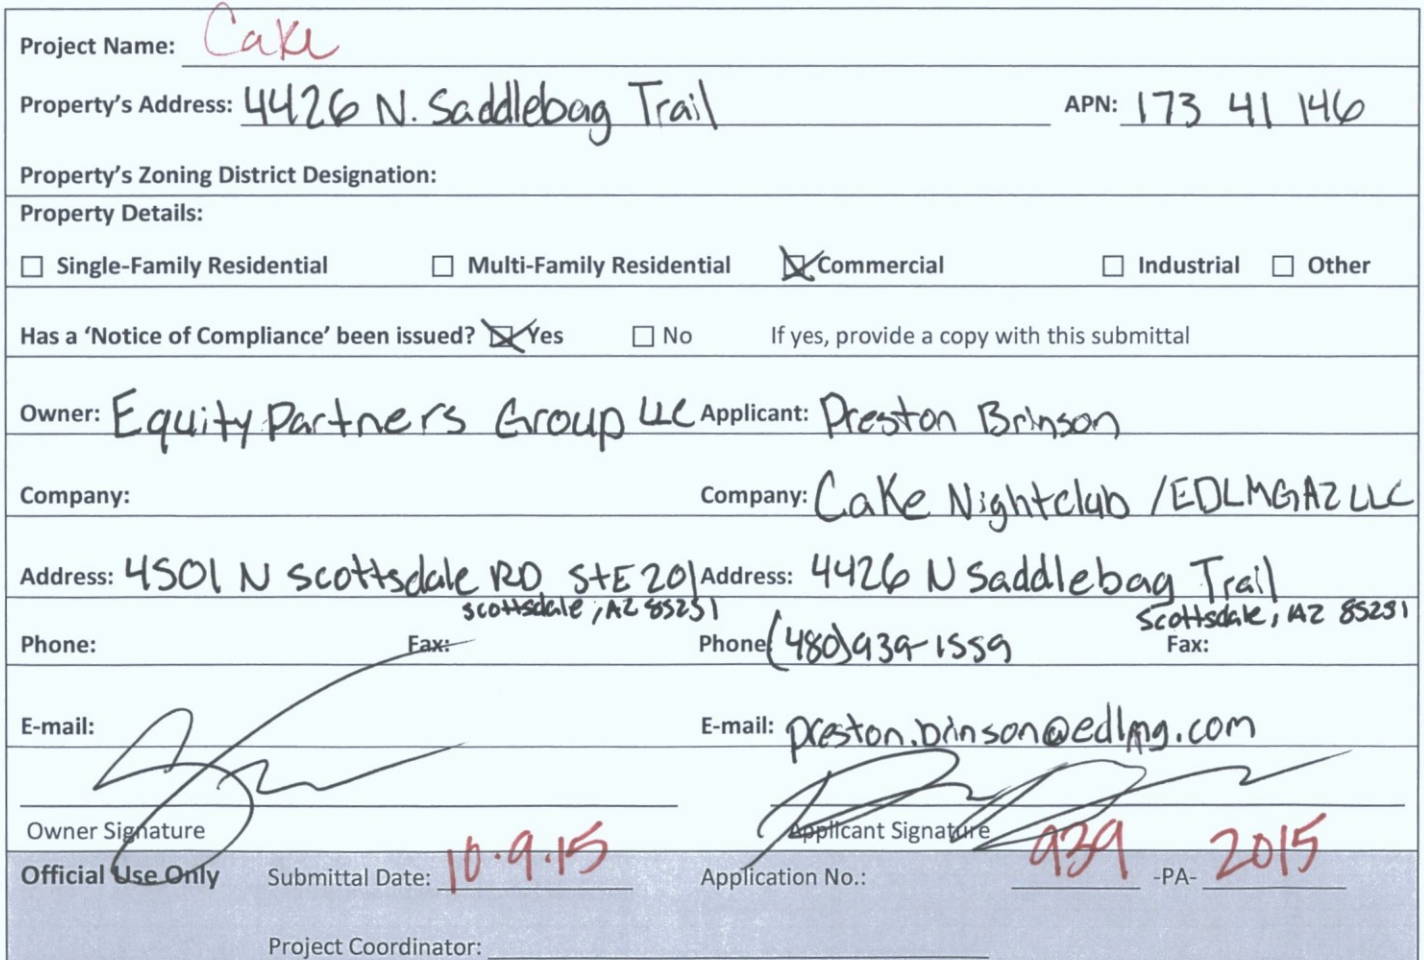 Project Name: Cake
Property's Address: 4426 N. Saddlebag Trail APN: 173 41 146
Property's Zoning District Designation:
Property Details:
☐ Single-Family Residential ☐ Multi-Family Residential ☒ Commercial ☐ Industrial ☐ Other
Has a 'Notice of Compliance' been issued? ☒ Yes ☐ No If yes, provide a copy with this submittal
Owner: Equity Partners Group LLC Applicant: Preston Brinson
Company: Company: Cake Nightclub /EDLMGAZ LLC
Address: 4501 N Scottsdale RD StE 201 Address: 4426 N Saddlebag Trail
Scottsdale, AZ 85251 Scottsdale, AZ 85251
Phone: Fax: Phone: (480)939-1559 Fax:
E-mail: E-mail: preston.brinson@edlmg.com
Owner Signature Applicant Signature
Official Use Only Submittal Date: 10.9.15 Application No.: 939 -PA- 2015
Project Coordinator: